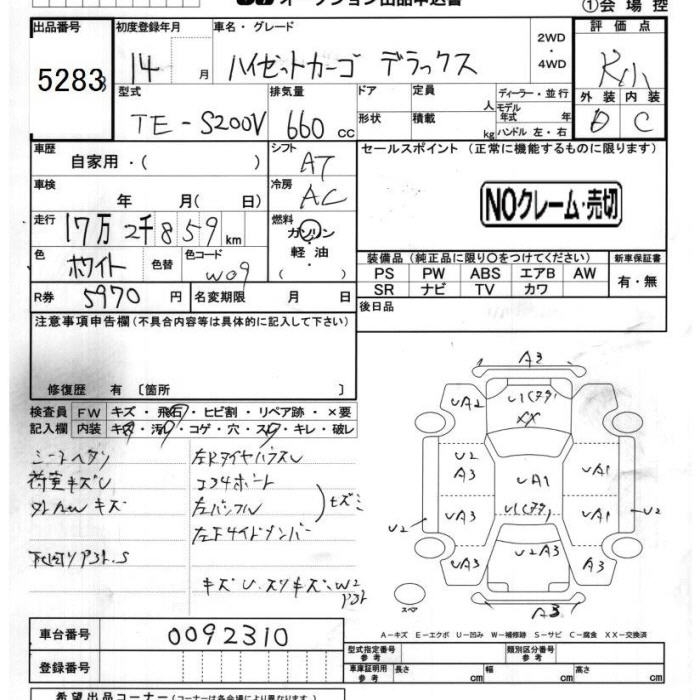 オークション出品申込書
①会場控
出品番号 初度登録年月 車名・グレード 評価点
5283 14 月 ハイゼットカーゴ デラックス 2WD・4WD R小
型式 排気量 ドア 定員 人 ディーラー・並行 外装 内装
TE-S200V 660 cc 形状 積載 kg モデル年式 年 ハンドル 左・右 D C
車歴 自家用・( ) シフト AT セールスポイント (正常に機能するものに限ります)
車検 年 月( 日) 冷房 AC
NOクレーム・売切
走行 17万2千859km 燃料 ガソリン・軽油 ( )
色 ホワイト 色替 色コード W09
装備品(純正品に限り○をつけてください) 新車保証書
PS PW ABS エアB AW 有・無
SR ナビ TV カワ
R券 5970 円 名変期限 月 日 後日品
注意事項申告欄(不具合内容等は具体的に記入して下さい)
修復歴 有 〔箇所 〕
検査員 FW キズ・飛石・ヒビ割・リペア跡・×要
記入欄 内装 キズ・汚れ・コゲ・穴・スレ・キレ・破レ
シートヘタリ
荷室キズU
左Rタイヤハウス U
コアサポート
キズ
左F サイドメンバー
A3
UA2
XX
U2
A3
UA1
UA1
UA3
UA1
U2
U2
U2A3
UA3
A3
A3
スペア
A-キズ E-エクボ U-凹み W-補修跡 S-サビ C-腐食 XX-交換済
車台番号 0092310
登録番号
型式指定番号 参考 類別区分番号 参考
車庫証明用 参考 長さ cm 幅 cm 高さ cm
希望出品コーナー(コーナー名は各会場により異なります)